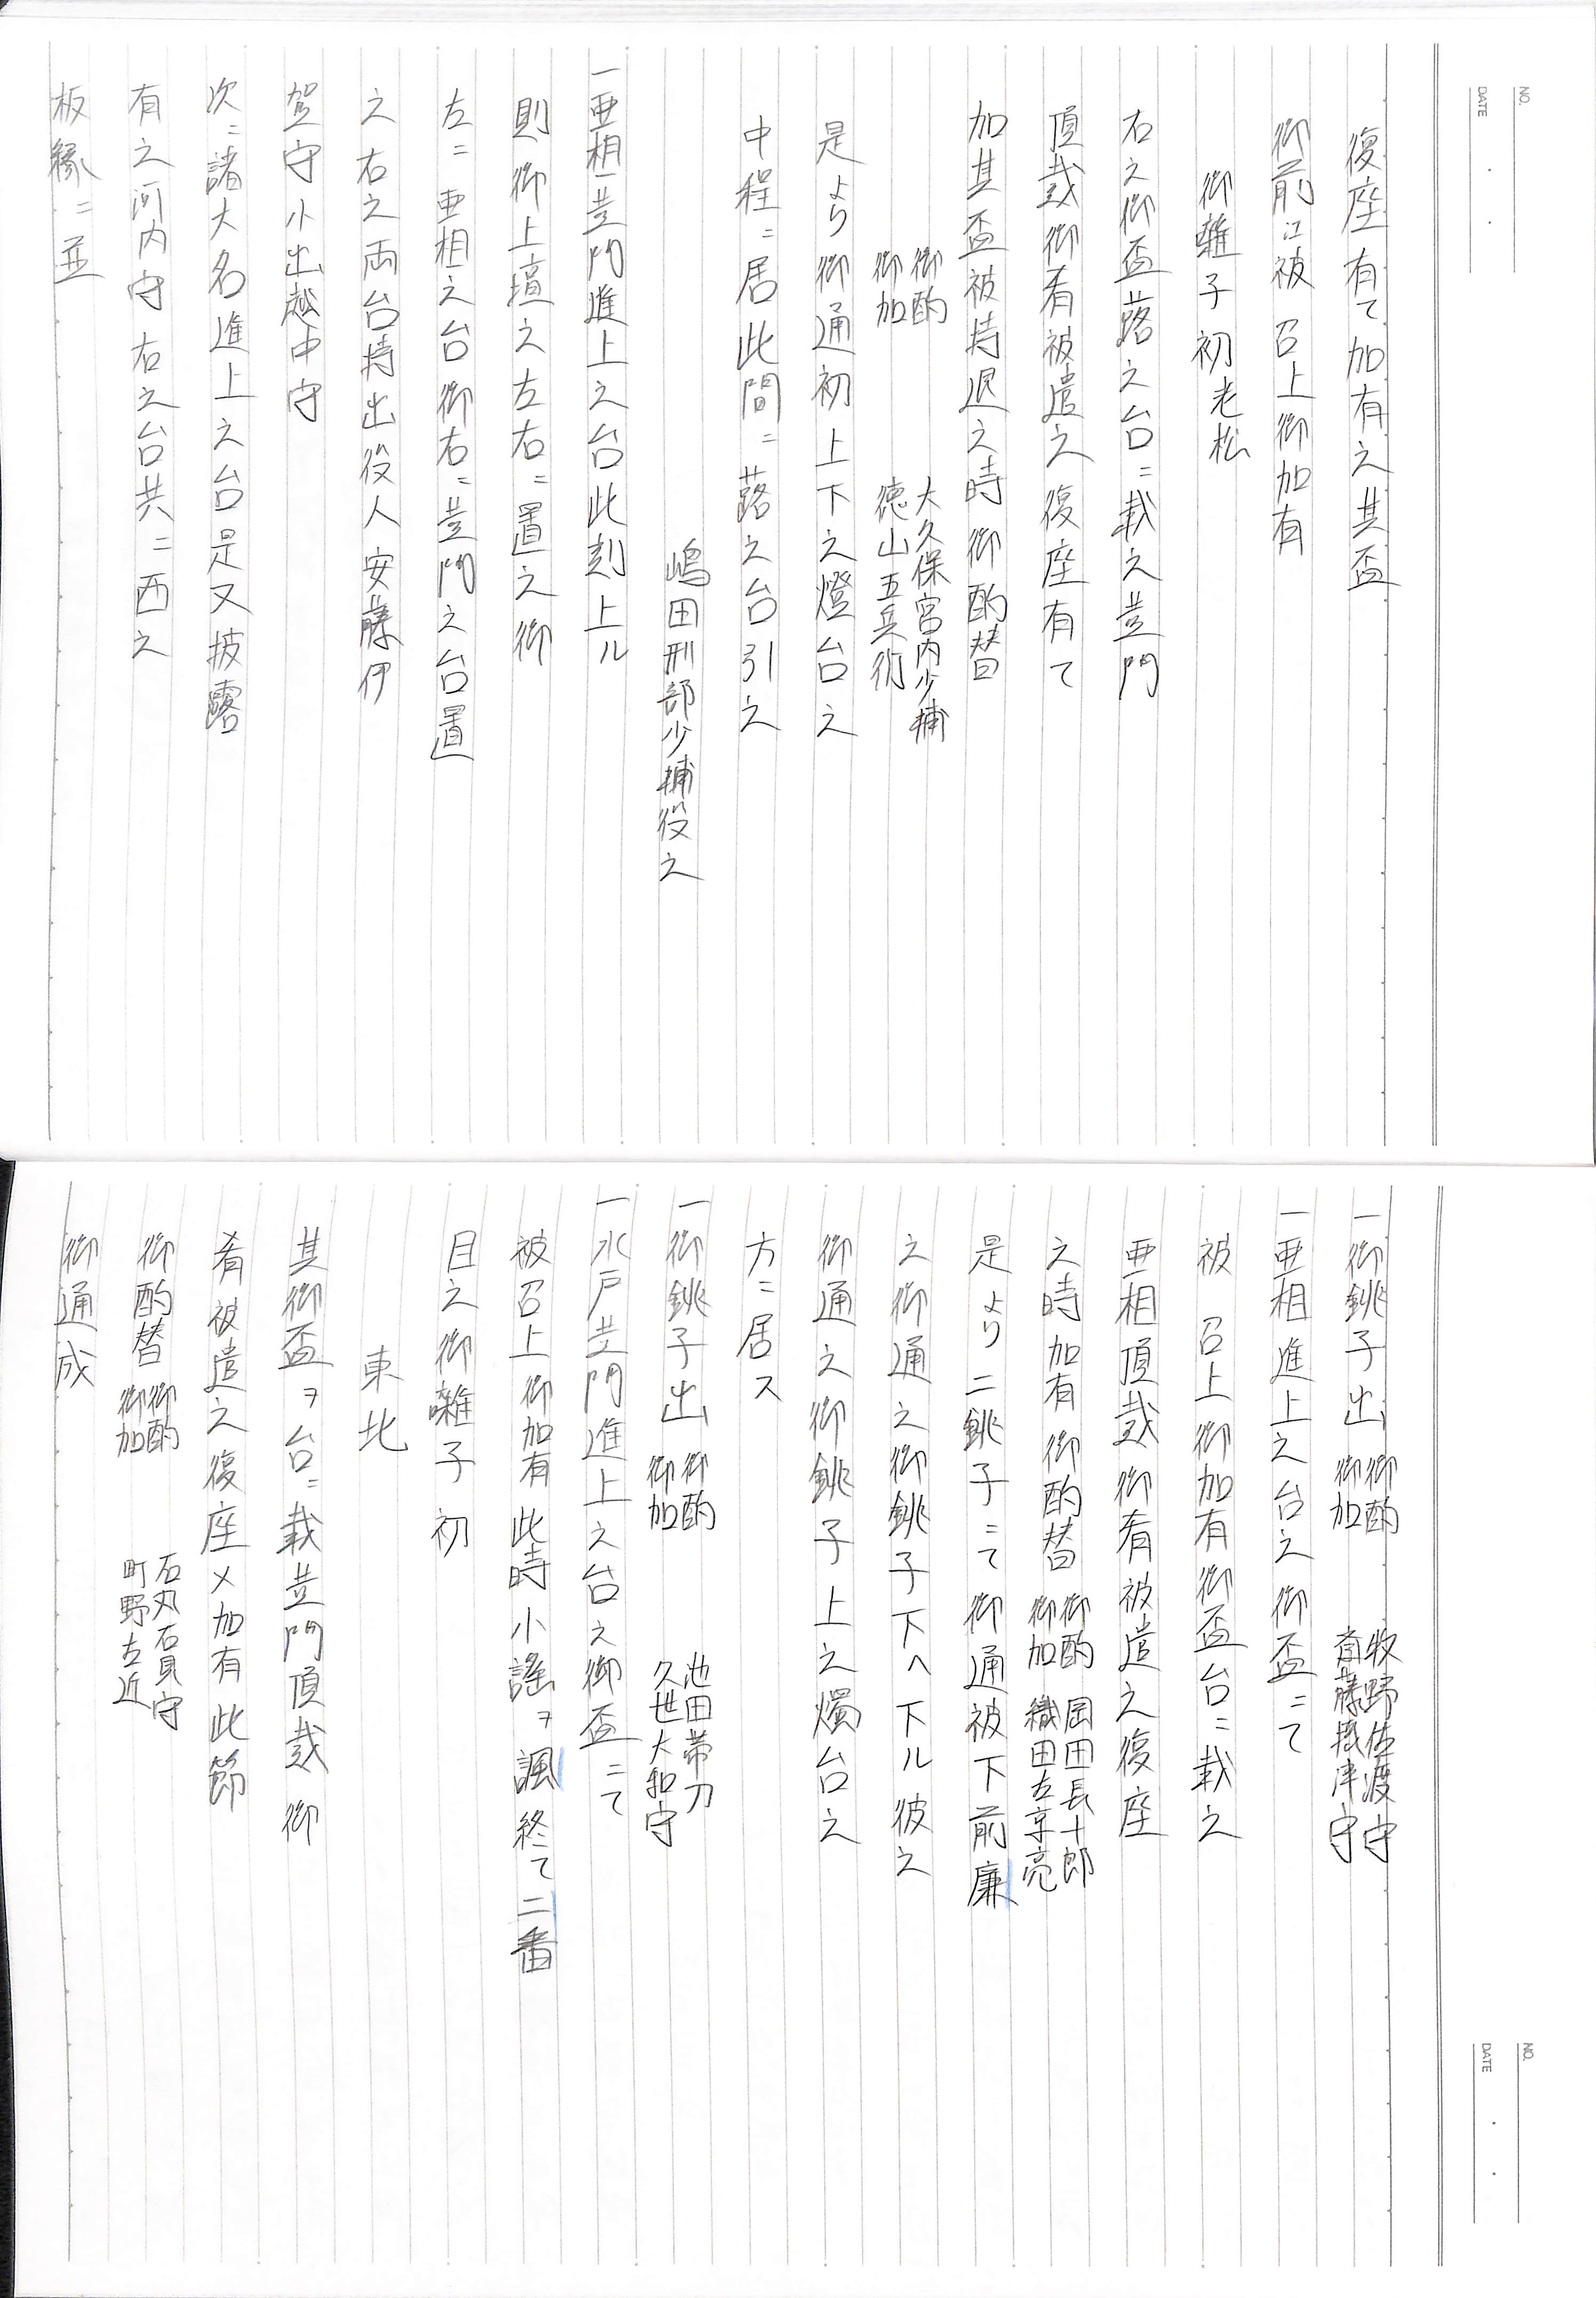 NO.
DATE
復座有て加有之其盃
御前江被 召上御加有
御雛子初老松
右之御盃蕗之台ニ載之黄門
頂戴御肴被遣之復座有て
加其盃被持退之時御酌替
御酌 大久保宮内少輔
御加 徳山五兵衛
是より御通初上下之燈台之
中程ニ居此間ニ蕗之台引之
嶋田刑部少輔役之
一亜相黄門進上之台此刻上ル
則御上壇之左右ニ置之御
左ニ亜相之台御右ニ黄門之台置
之右之両台持出役人安藤伊
賀守小出越中守
次ニ諸大名進上之台是又披露
有之河内守右之台共ニ西之
板縁ニ並
NO.
DATE
一御銚子出 御酌 牧野佐渡守
御加 斎藤摂津守
一亜相進上之台之御盃ニて
被 召上御加有御盃台ニ載之
亜相頂戴御肴被遣之復座
之時加有御酌替 御酌 岡田長十郎
御加 織田左京亮
是より二銚子ニて御通被下前廉
之御通之御銚子下へ下ル彼之
御通之御銚子上之燭台之
方ニ居ス
一御銚子出 御酌 池田帯刀
御加 久世大和守
一水戸黄門進上之台之御盃ニて
被召上御加有此時小謡ヲ諷終て二番
目之御囃子初
東北
其御盃ヲ台ニ載黄門頂戴御
肴被遣之復座〆加有此節
御酌替 御酌 石丸石見守
御加 町野左近
御通成